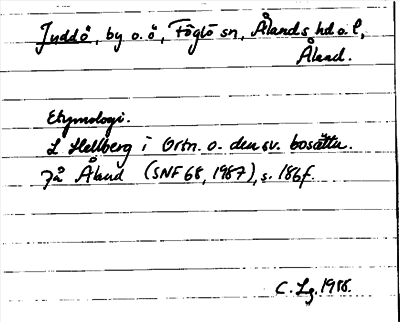 Juddö, by o. ö, Föglö sn, Ålands hd o. l,
Åland.
Etymologi.
L Hellberg i Ortn. o. den sv. bosättn.
på Åland (SNF 68, 1987), s. 186f.
C. Lg. 1988.